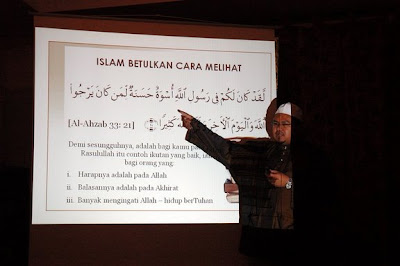 ISLAM BETULKAN CARA MELIHAT
لَّقَدْ كَانَ لَكُمْ فِي رَسُولِ اللَّهِ أُسْوَةٌ حَسَنَةٌ لِّمَن كَانَ يَرْجُوا
اللَّهَ وَالْيَوْمَ الْآخِرَ كَثِيرًا
[Al-Ahzab 33: 21]
Demi sesungguhnya, adalah bagi kamu
Rasulullah itu contoh ikutan yang baik,
bagi orang yang:
i. Harapnya adalah pada Allah
ii. Balasannya adalah pada Akhirat
iii. Banyak mengingati Allah – hidup berTuhan